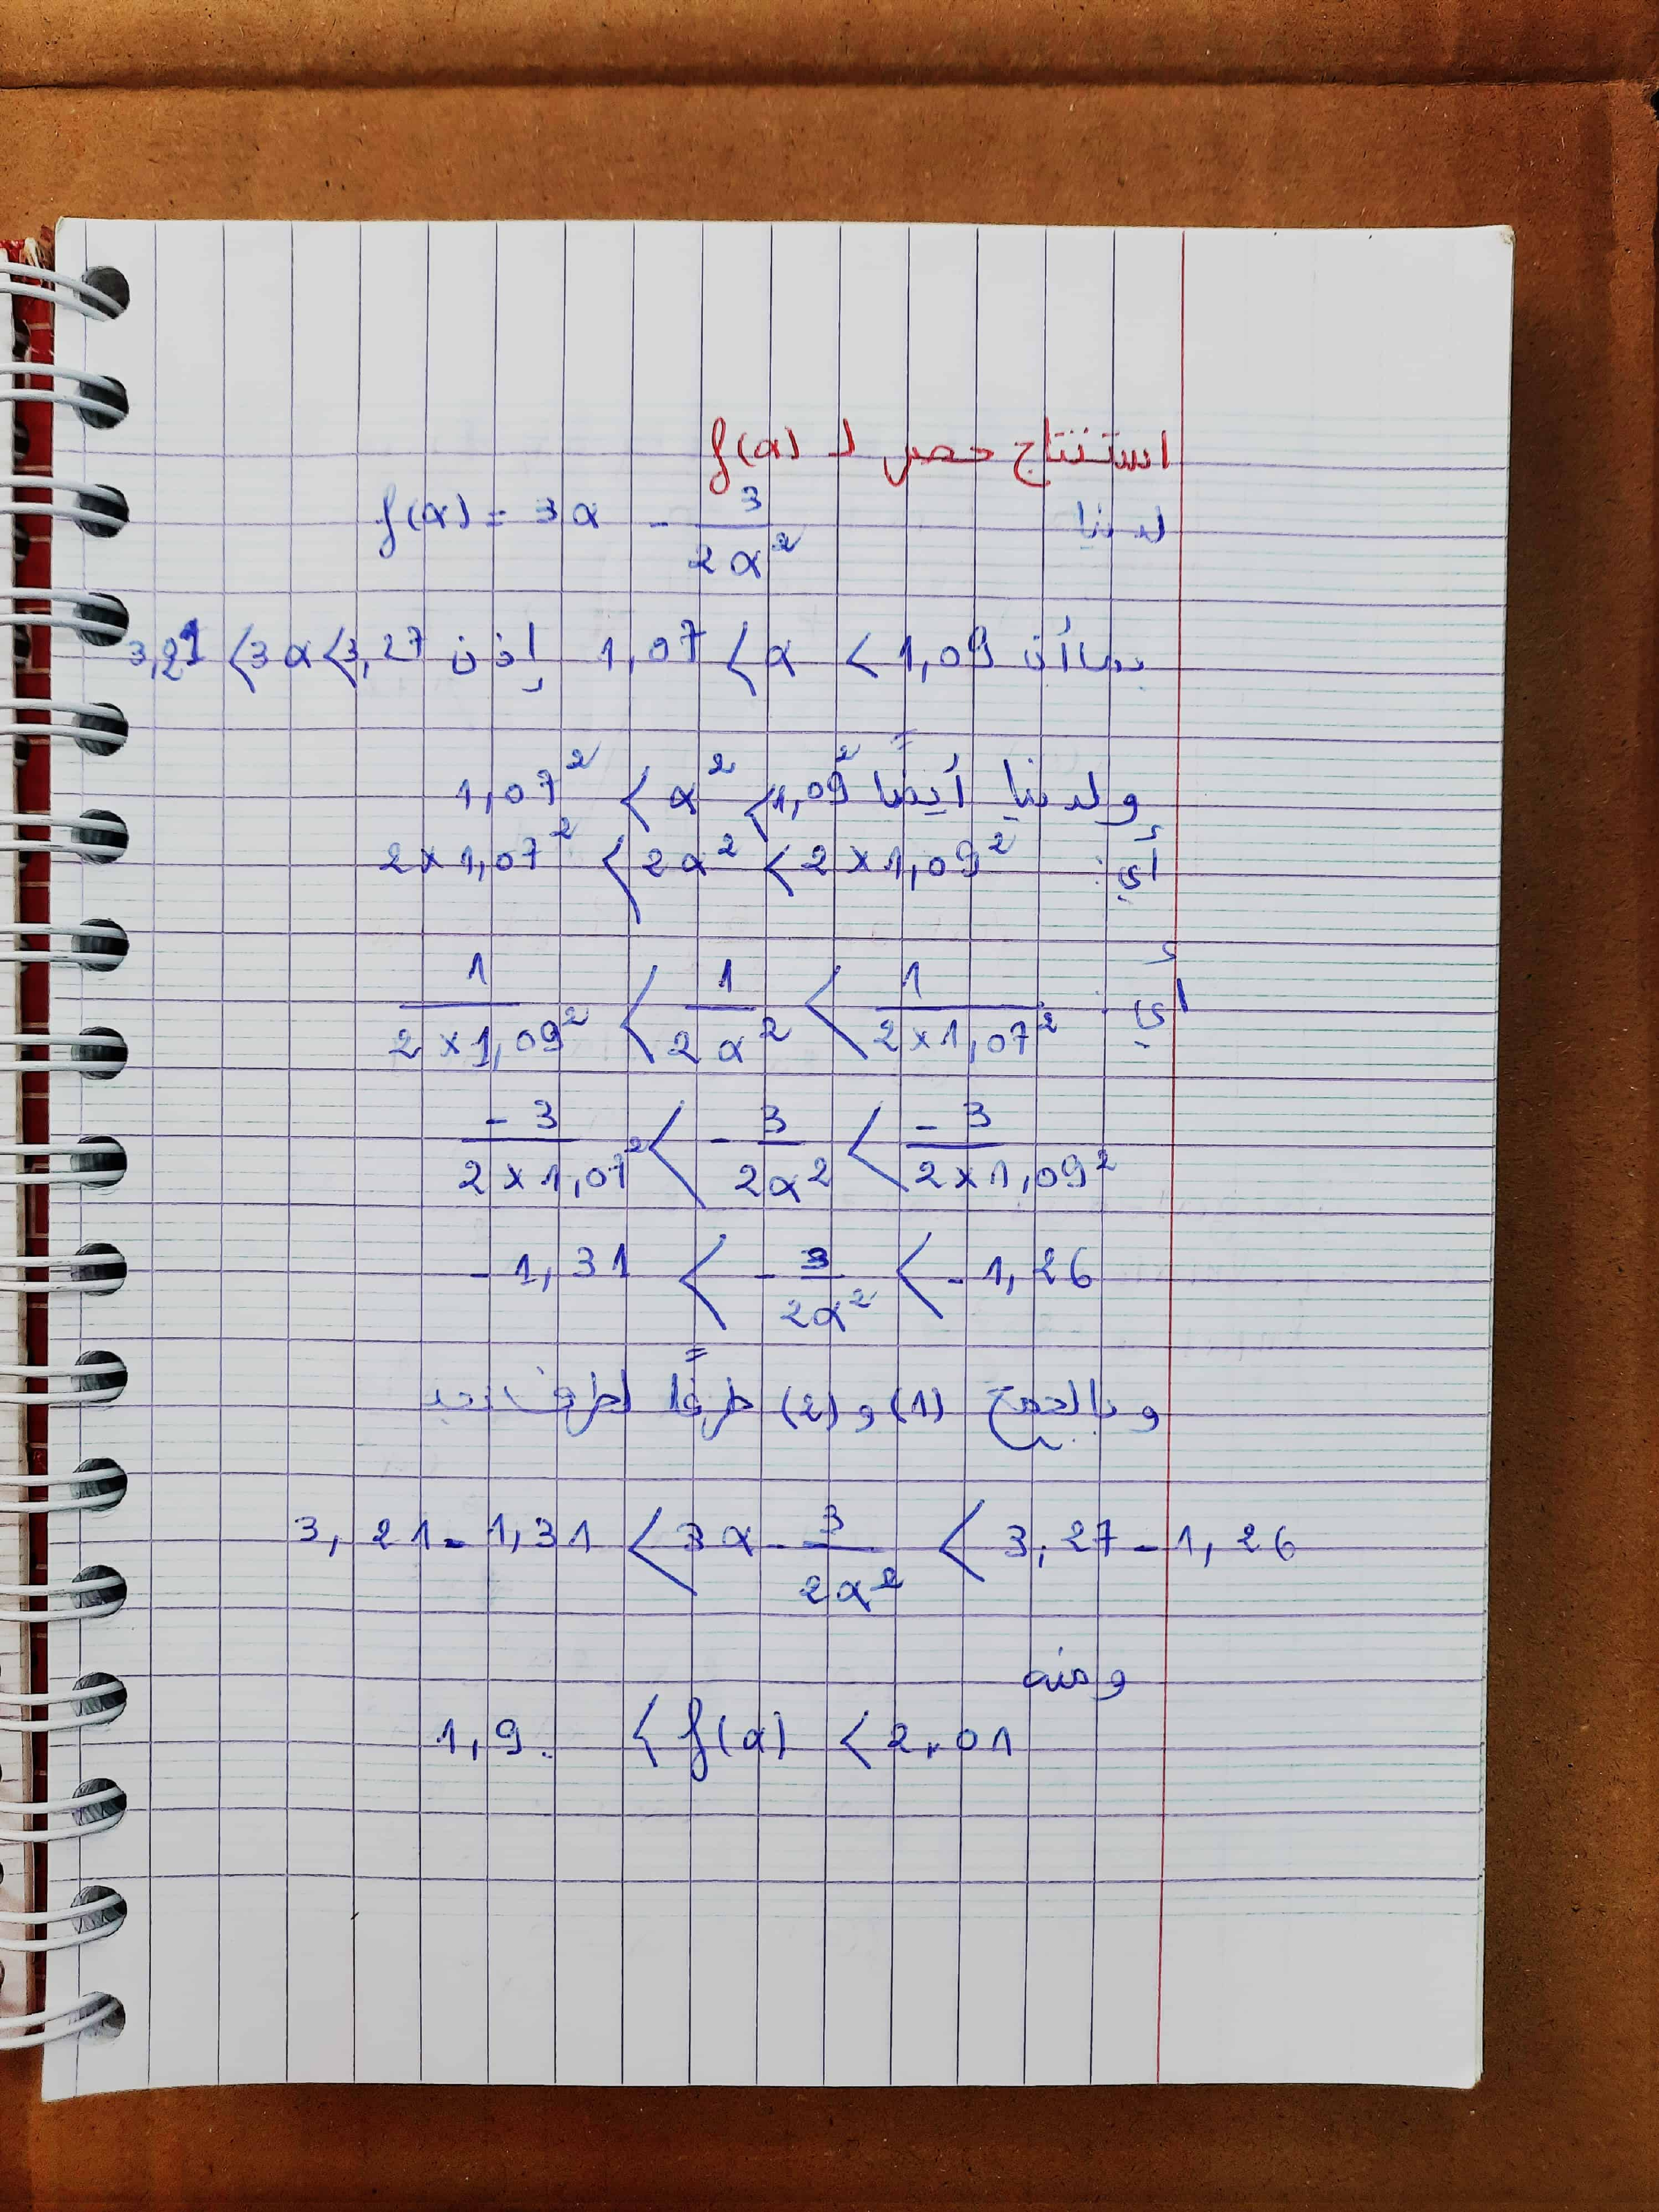 استنتاج حصر لـ f(α)
لدينا f(α) = 3α - 3/(2α²)
بما أن 1,07 < α < 1,09 إذن 3,21 < 3α < 3,27
ولدينا أيضاً 1,07² < α² < 1,09²
أي: 2×1,07² < 2α² < 2×1,09²
أي: 1/(2×1,09²) < 1/(2α²) < 1/(2×1,07²)
-3/(2×1,07²) < -3/(2α²) < -3/(2×1,09²)
-1,31 < -3/(2α²) < -1,26
وبالجمع (1) و (2) طرفاً لطرف نجد
3,21 - 1,31 < 3α - 3/(2α²) < 3,27 - 1,26
ومنه
1,9 < f(α) < 2,01